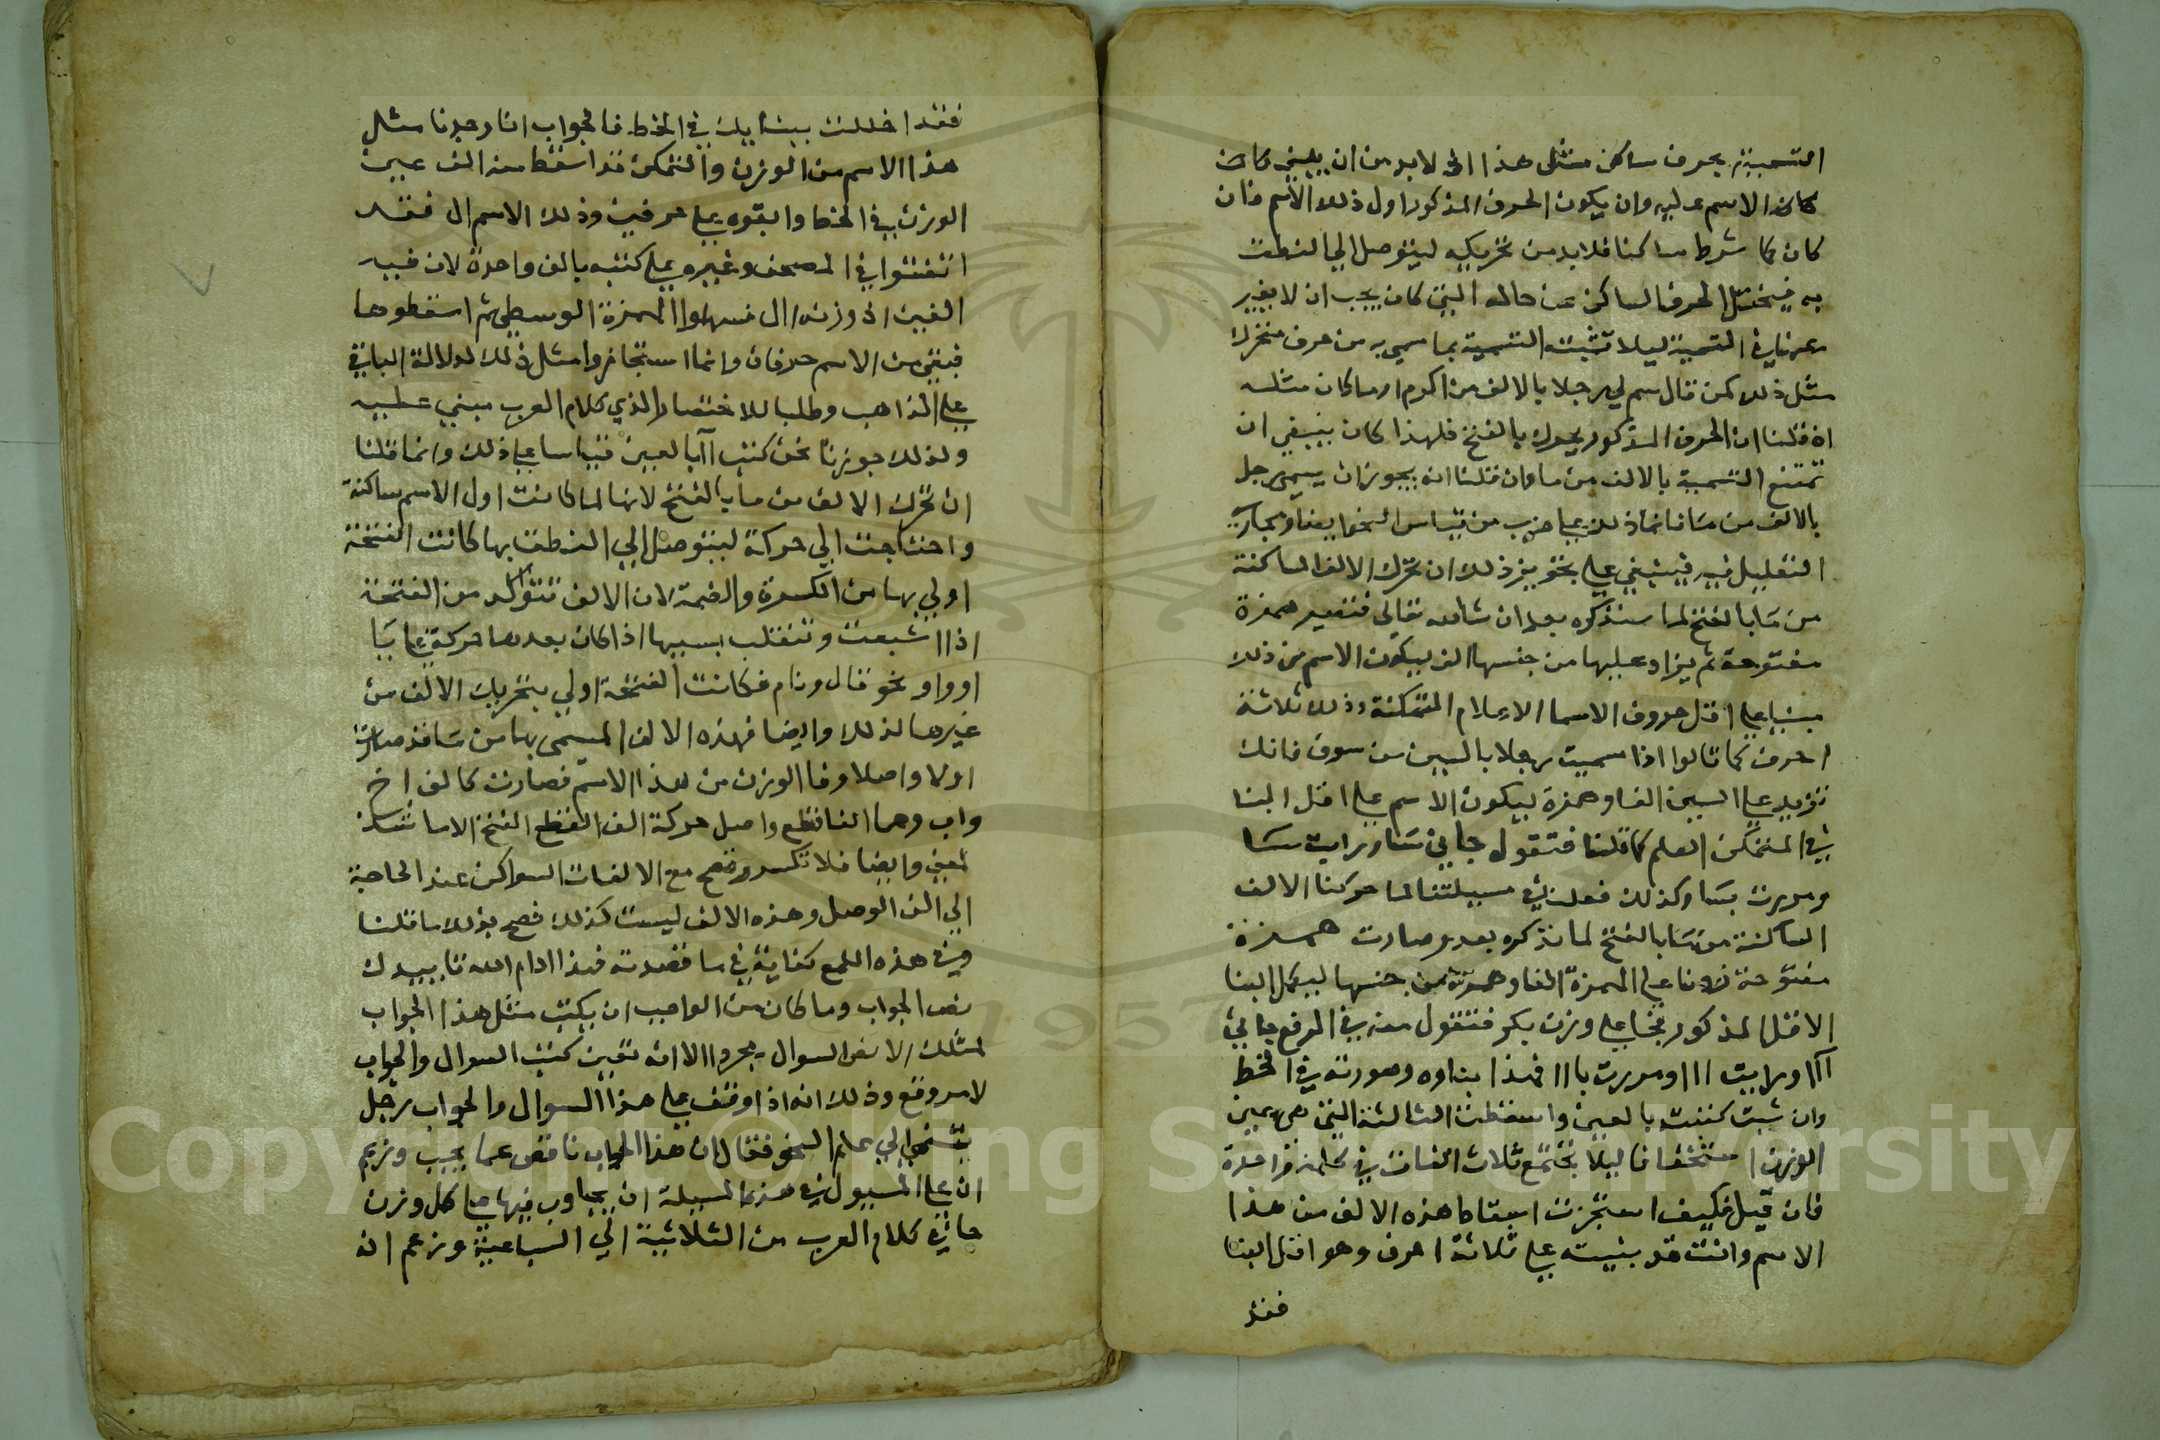 التسمية بحرف ساكن مثل هذا الى لابد من ان يبني كان
كان الاسم عليه وان يكون الحرف المذكور اول ذلك الاسم فان
كان كما شرط ساكنا فلابد من تحريكه ليتوصل الي النطق
به فينتقل الحرف الساكن عن حاله التي كان يجب ان لا يغير
عنها في التسمية ليلا تثبت التسمية بما سمي به من حرف متحرك
مثل ذلك كمن قال سم لي رجلا بالالف من اكرم او ما كان مثله
اذ قلنا ان الحرف المذكور يحرك بالفتح فلهذا كان ينبغي ان
تمتنع التسمية بالالف من ما وان قلنا انه يجوز ان يسمى رجل
بالالف من ما فانما ذلك على ضرب من قياس النحو ايضا ومجاراة
التعليل فيه فينبغي على تجويز ذلك ان تحرك الالف الساكنة
من ما بالفتح لما سنذكره بعد ان شا الله تعالى فتصير همزة
مفتوحة ثم يزاد عليها من جنسها الف ليكون الاسم من ذلك
مبنيا على اقل حروف الاسما الاعلام المتمكنة وذلك ثلاثة
احرف كما قالوا اذا سميت رجلا بالسين من سوف فانك
تزيد على السين الفا وهمزة ليكون الاسم على اقل البنا
في المتمكن العلم كما قلنا فتقول جاني سا ورايت سا
ومررت بسا وكذلك فعلت في مسيلتنا لما حركنا الالف
الساكنة من ما بالفتح لما نذكره بعد وصارت همزة
مفتوحة زدنا على الهمزة الفا وهمزة من جنسها ليكمل البنا
الاقل المذكور فجا على وزن بكر فتقول منه في الرفع جاني
آاا ورايت ااا ومررت باا فهذا بناوه وصورته في الخط
وان شيت كتبته بالفين واسقطت الثالثة التي هي عين
الوزن استخفافا ليلا تجتمع ثلاث الفات في كلمة واحدة
فان قيل فكيف استجزت اسقاط هذه الالف من هذا
الاسم وانت قد بنيته على ثلاثة احرف وهو اقل البنا
فقد
فقد اخللت ببنايك في الخط فالجواب انا وجدنا مثل
هذا الاسم من الوزن والتمكن قد اسقط منه الف عين
الوزن في الخط وابقوه على حرفين وذلك الاسم ال فقد
اتفقوا في المصحف وغيره على كتبه بالف واحدة لان فيه
الفين اذ وزنه اال فسهلوا الهمزة الوسطى ثم اسقطوها
فبقي من الاسم حرفان وانما استجازوا مثل ذلك لدلالة الباقي
على الذاهب وطلبا للاختصار الذي كلام العرب مبني عليه
ولذلك جوزنا نحن كتب آا بالفين قياسا على ذلك وانما قلنا
ان تحرك الالف من ما بالفتح لانها لما كانت اول الاسم ساكنة
واحتاجت الي حركة ليتوصل الي النطق بها كانت الفتحة
اولي بها من الكسرة والضمة لان الالف تتولد من الفتحة
اذا اشبعت وتنقلب بسببها اذا كان بعدها حركة يا
او واو نحو قال ونام فكانت الفتحة اولي بتحريك الالف من
غيرها لذلك وايضا فهذه الالف المسمى بها من ما قد صارت
اولا واصلا وفا الوزن من هذا الاسم فصارت كالف اخ
واب وهما الفا قطع واصل حركة الف القطع الفتح الا ما شذ
لمعنى وايضا فلا تكسر وتصح مع الالفات السواكن عند الحاجة
الي الف الوصل وهذه الالف ليست كذلك فصح بذلك ما قلنا
وفي هذه اللمع كفاية في ما قصدته فهذا ادام الله تاييدك
نص الجواب وما كان من الواجب ان يكتب مثل هذا الجواب
لمثلك الا نص السوال مجردا الا انه تعين كتب السوال والجواب
لامر وقع وذلك انه اذ وقف على هذا السوال والجواب رجل
ينتمي الي علم النحو فقال ان هذا الجواب ناقص عما يجب وزعم
ان على المسيول في هذه المسيلة ان يجاوب فيها على كل وزن
جا في كلام العرب من الثلاثية الي السباعية وزعم انه